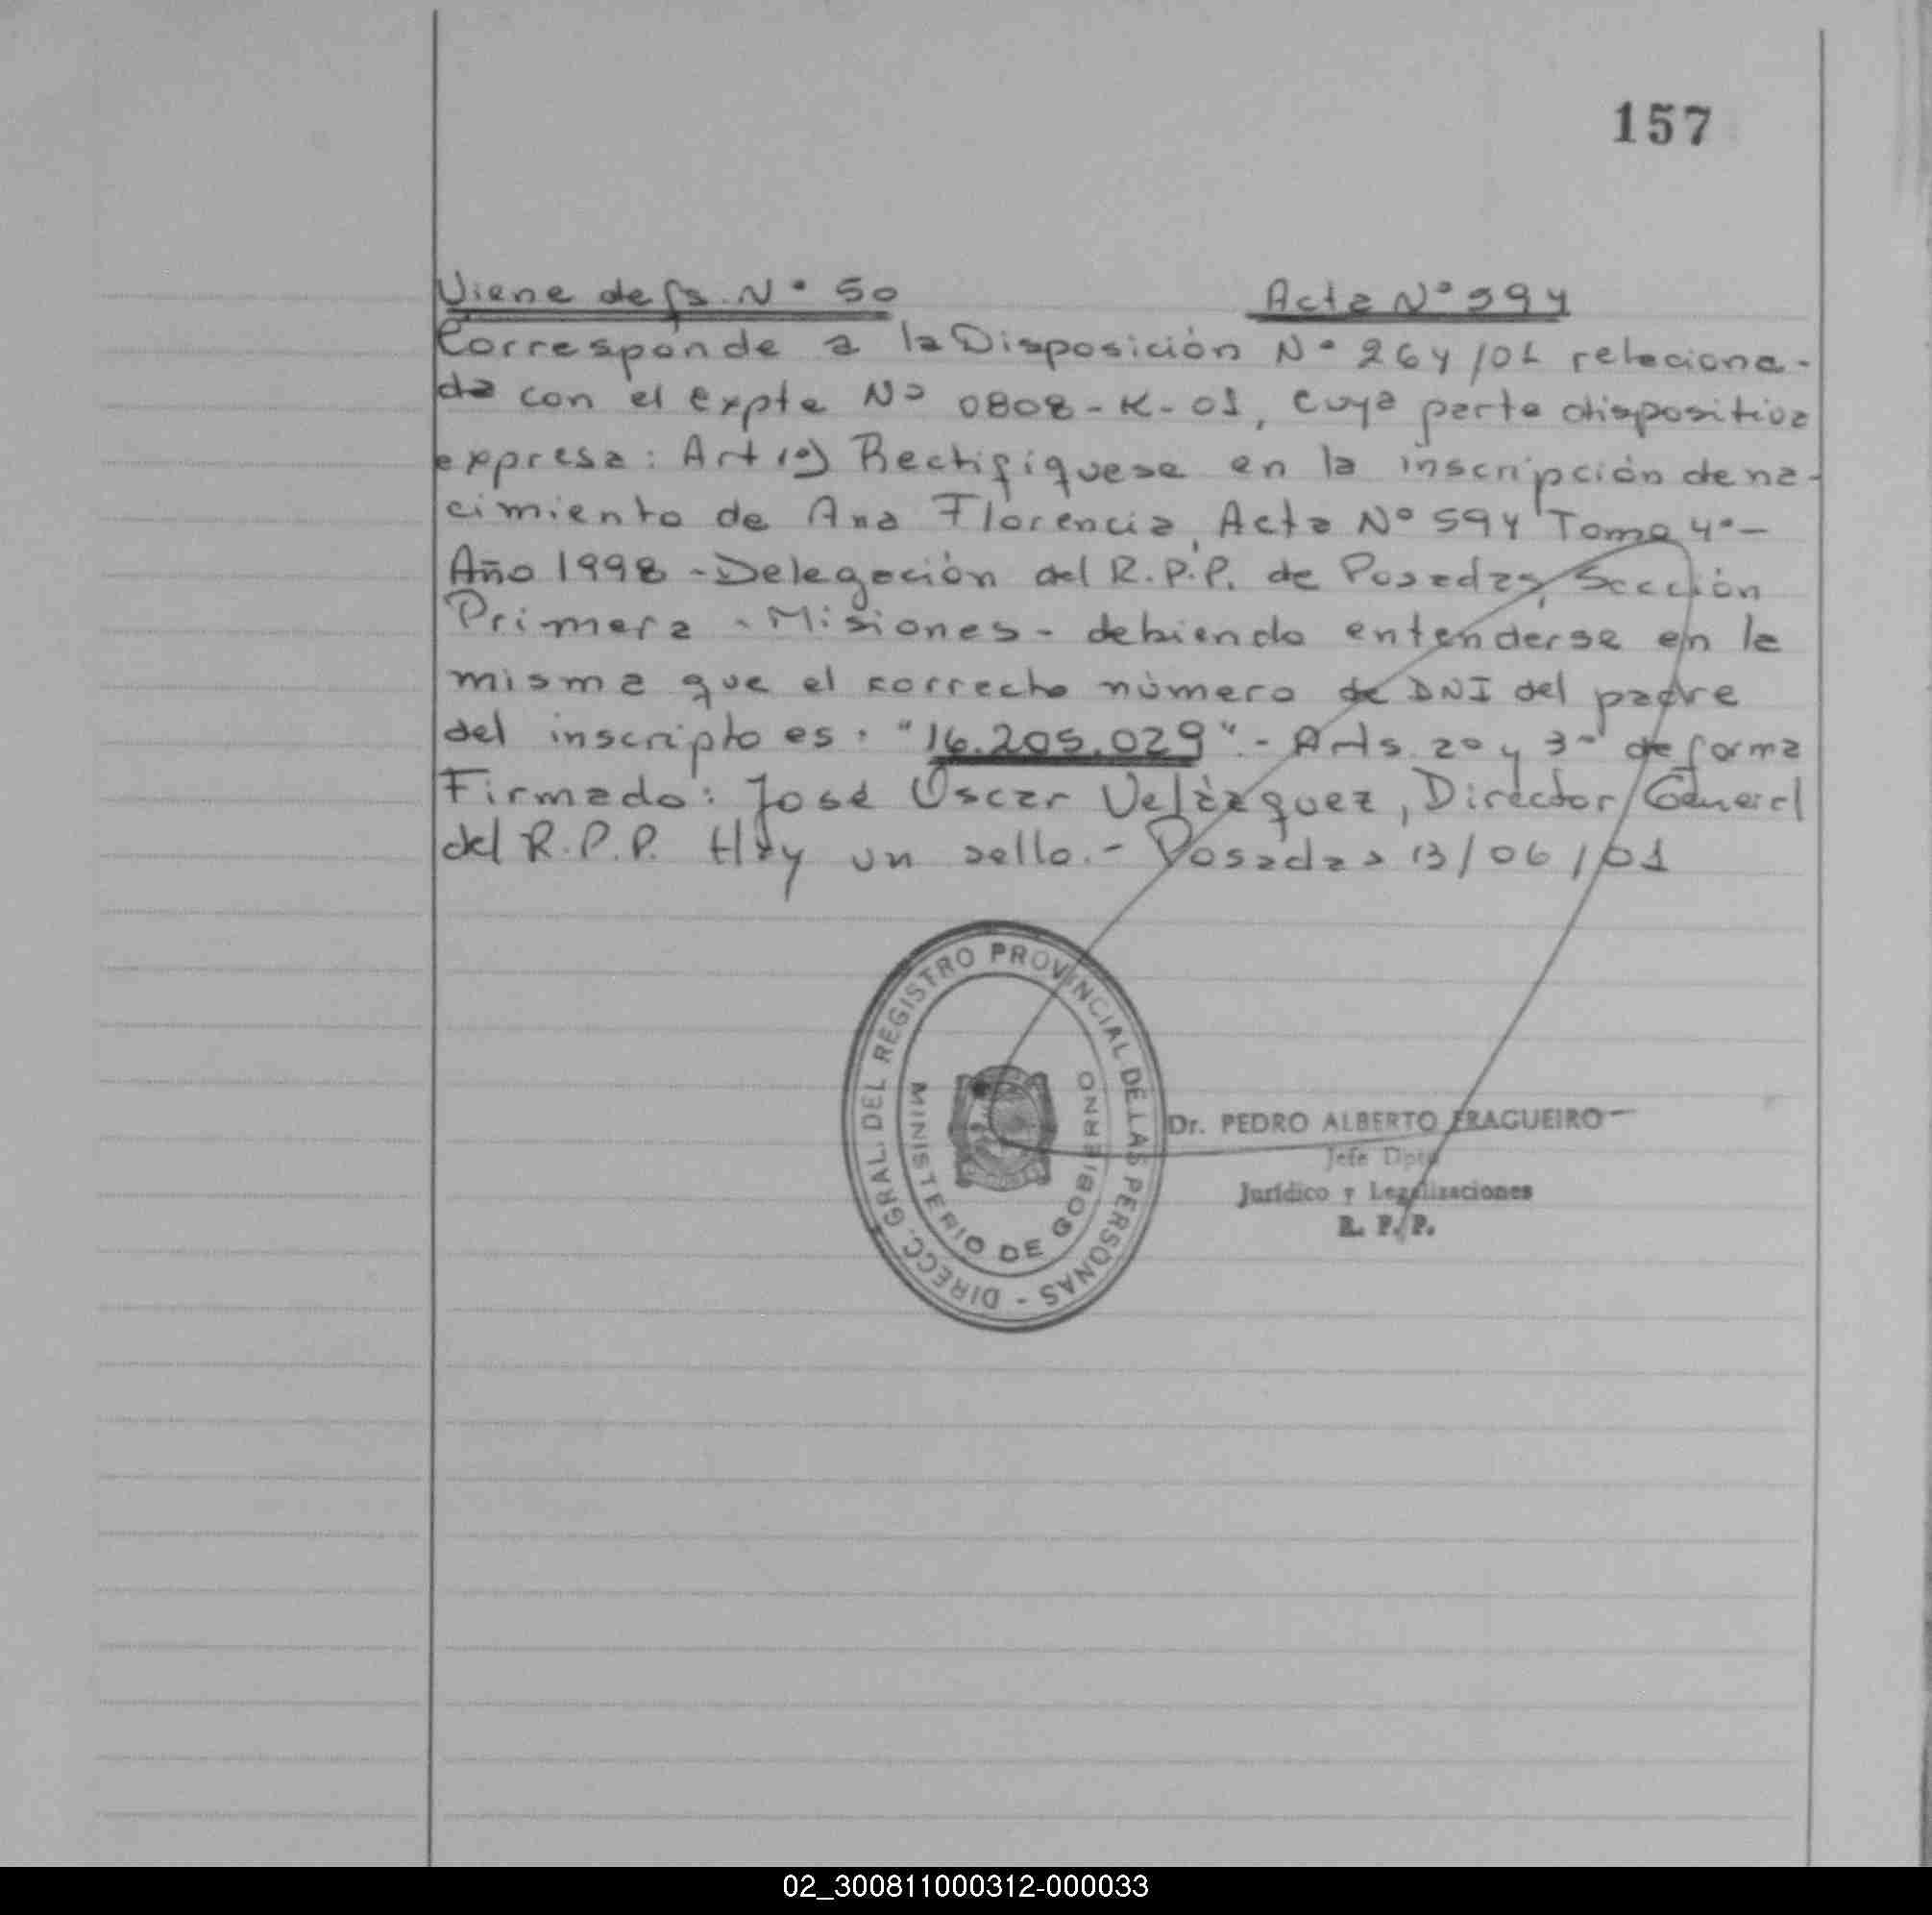 157
Viene de fs. Nº 50 Acta Nº 594
Corresponde a la Disposición Nº 264/01 relaciona-
da con el expte Nº 0808-K-01, cuya parte dispositiva
expresa: Art 1º) Rectifíquese en la inscripción de na-
cimiento de Ana Florencia, Acta Nº 594 Tomo 4º-
Año 1998 - Delegación del R.P.P. de Posadas, Sección
Primera - Misiones - debiendo entenderse en la
misma que el correcto número de DNI del padre
del inscripto es: "16.205.029".- Arts. 2º y 3º de forma
Firmado: José Oscar Velázquez, Director General
del R.P.P. Hay un sello.- Posadas 13/06/01
DIRECC. GRAL. DEL REGISTRO PROVINCIAL DE LAS PERSONAS -
MINISTERIO DE GOBIERNO
Dr. PEDRO ALBERTO FRAGUEIRO
Jefe Dpto
Jurídico y Legalizaciones
R. P. P.
02_300811000312-000033